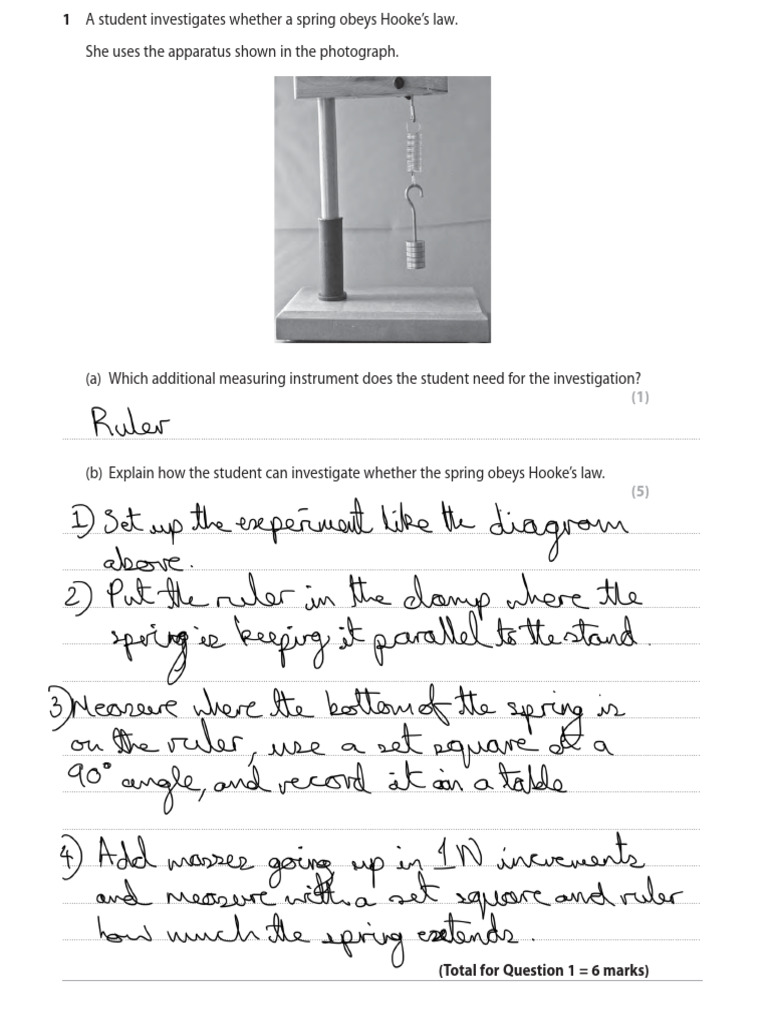 1 A student investigates whether a spring obeys Hooke's law.
She uses the apparatus shown in the photograph.
(a) Which additional measuring instrument does the student need for the investigation?
(1)
Ruler
(b) Explain how the student can investigate whether the spring obeys Hooke's law.
(5)
1) Set up the experiment like the diagram
above.
2) Put the ruler in the clamp where the
spring is keeping it parallel to the stand.
3) Measure where the bottom of the spring is
on the ruler, use a set square at a
90° angle, and record it in a table
4) Add masses going up in 1N increments
and measure with a set square and ruler
how much the spring extends.
(Total for Question 1 = 6 marks)